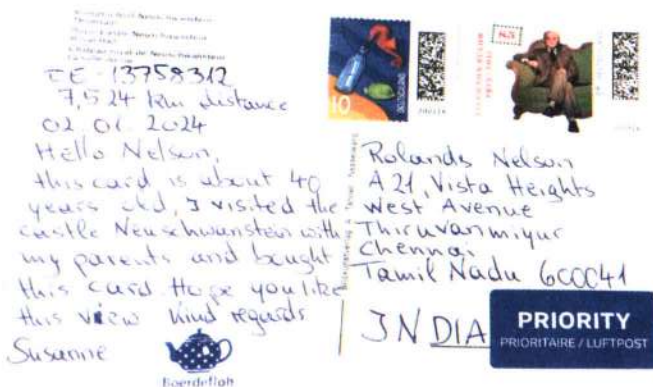 DE-13758312
7,524 km distance
02.01.2024
Hello Nelson,
this card is about 40
years old, I visited the
castle Neuschwanstein with
my parents and bought
this card. Hope you like
this view Kind regards
Susanne
10
85
Rolands Nelson
A 21, Vista Heights
West Avenue
Thiruvanmiyur
Chennai
Tamil Nadu 600041
INDIA
PRIORITY
PRIORITAIRE / LUFTPOST